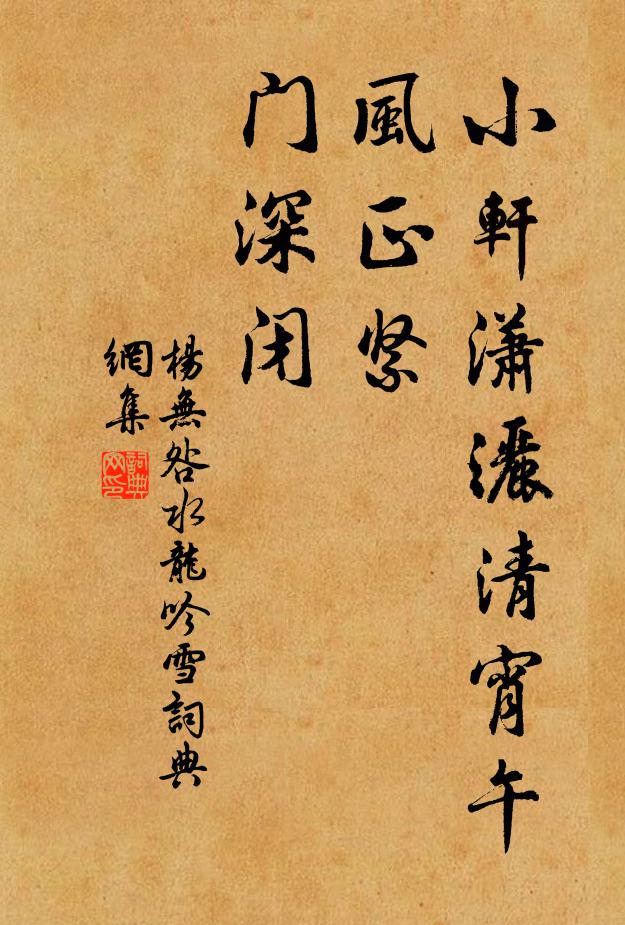 小軒瀟灑清宵午
風正紧
门深闭
楊無咎水龍吟雪詞典
網集
詞典
网印